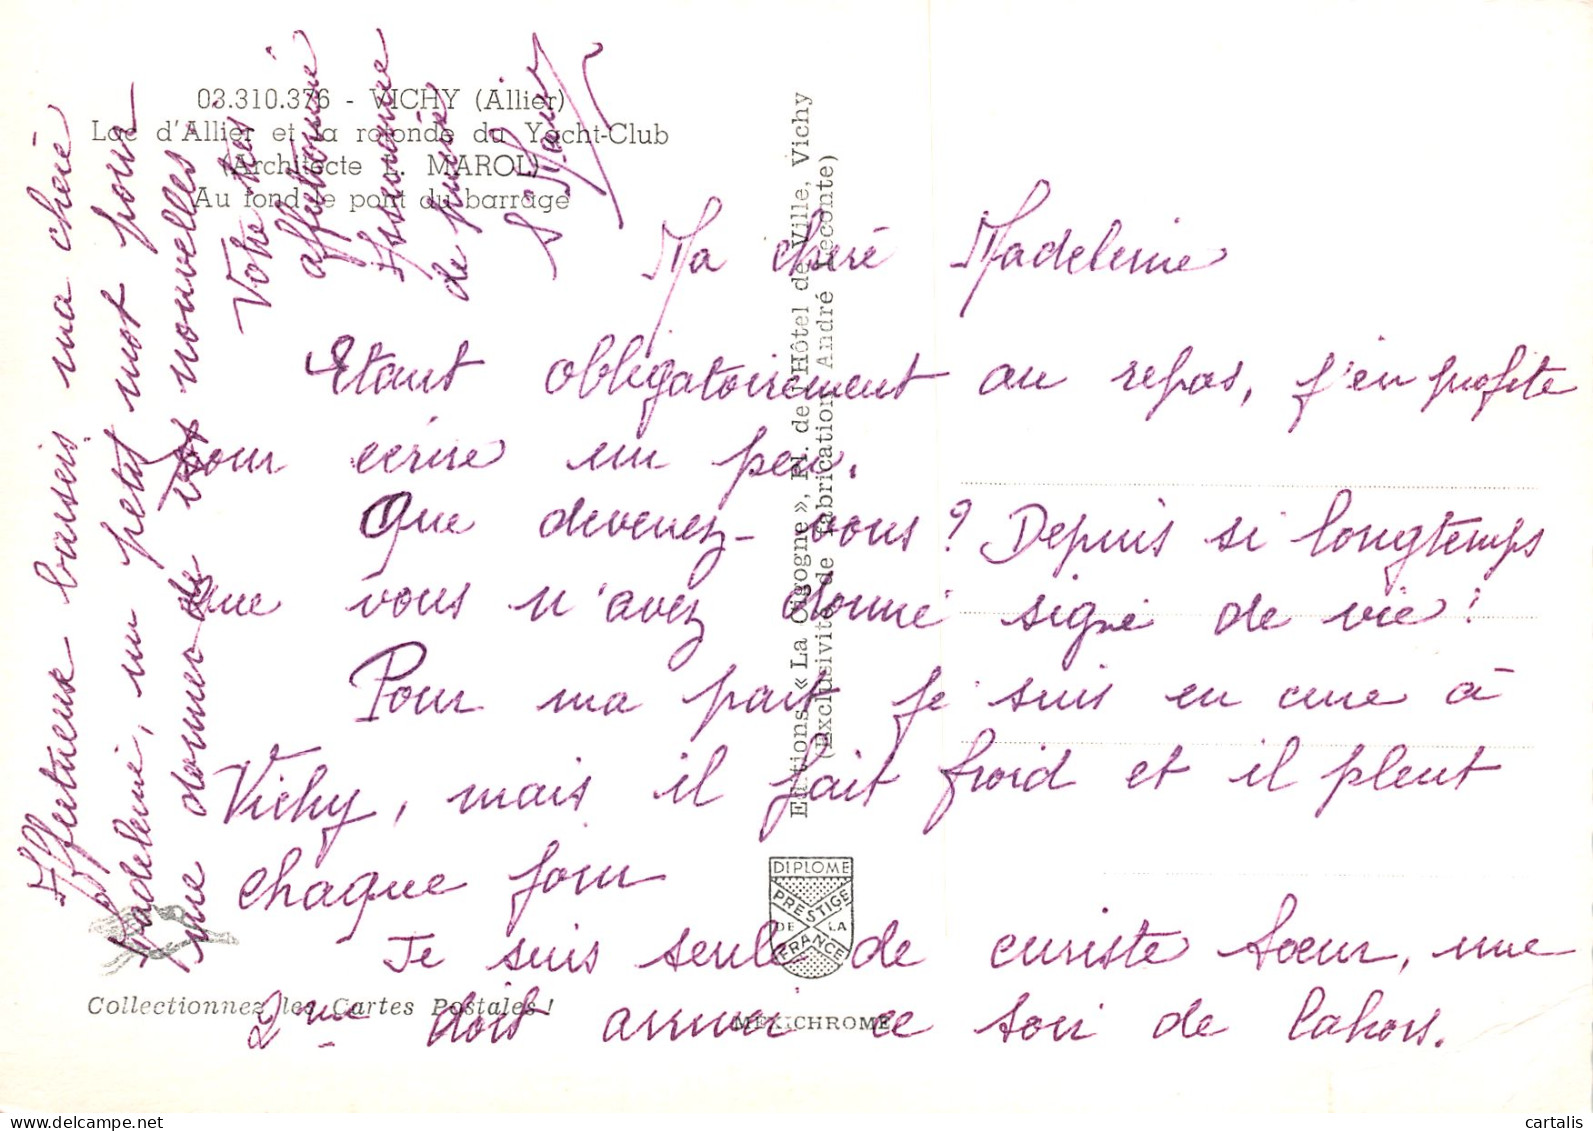 03.310.376 - VICHY (Allier)
Lac d'Allier et la rotonde du Yacht-Club
(Architecte L. MAROL)
Au fond le pont du barrage
Ma chère Madeleine
Etant obligatoirement au repos, j'en profite
pour écrire un peu.
Que devenez-vous ? Depuis si longtemps
que vous n'avez donné signe de vie !
Pour ma part je suis en cure à
Vichy, mais il fait froid et il pleut
chaque jour
Je suis seule de curiste Sœur, une
2me doit arriver ce soir de Cahors.
Affectueux baisers ma chère
Madeleine, un petit mot pour
me donner de vos nouvelles
Votre très
affectionné
Assurance
de prière
Sr
Editions « La Cigogne », Pl. de l'Hôtel de Ville, Vichy
(Exclusivité de fabrication André Leconte)
DIPLOME
PRESTIGE
DE LA
FRANCE
MEXICHROME
Collectionnez les Cartes Postales !
cartalis